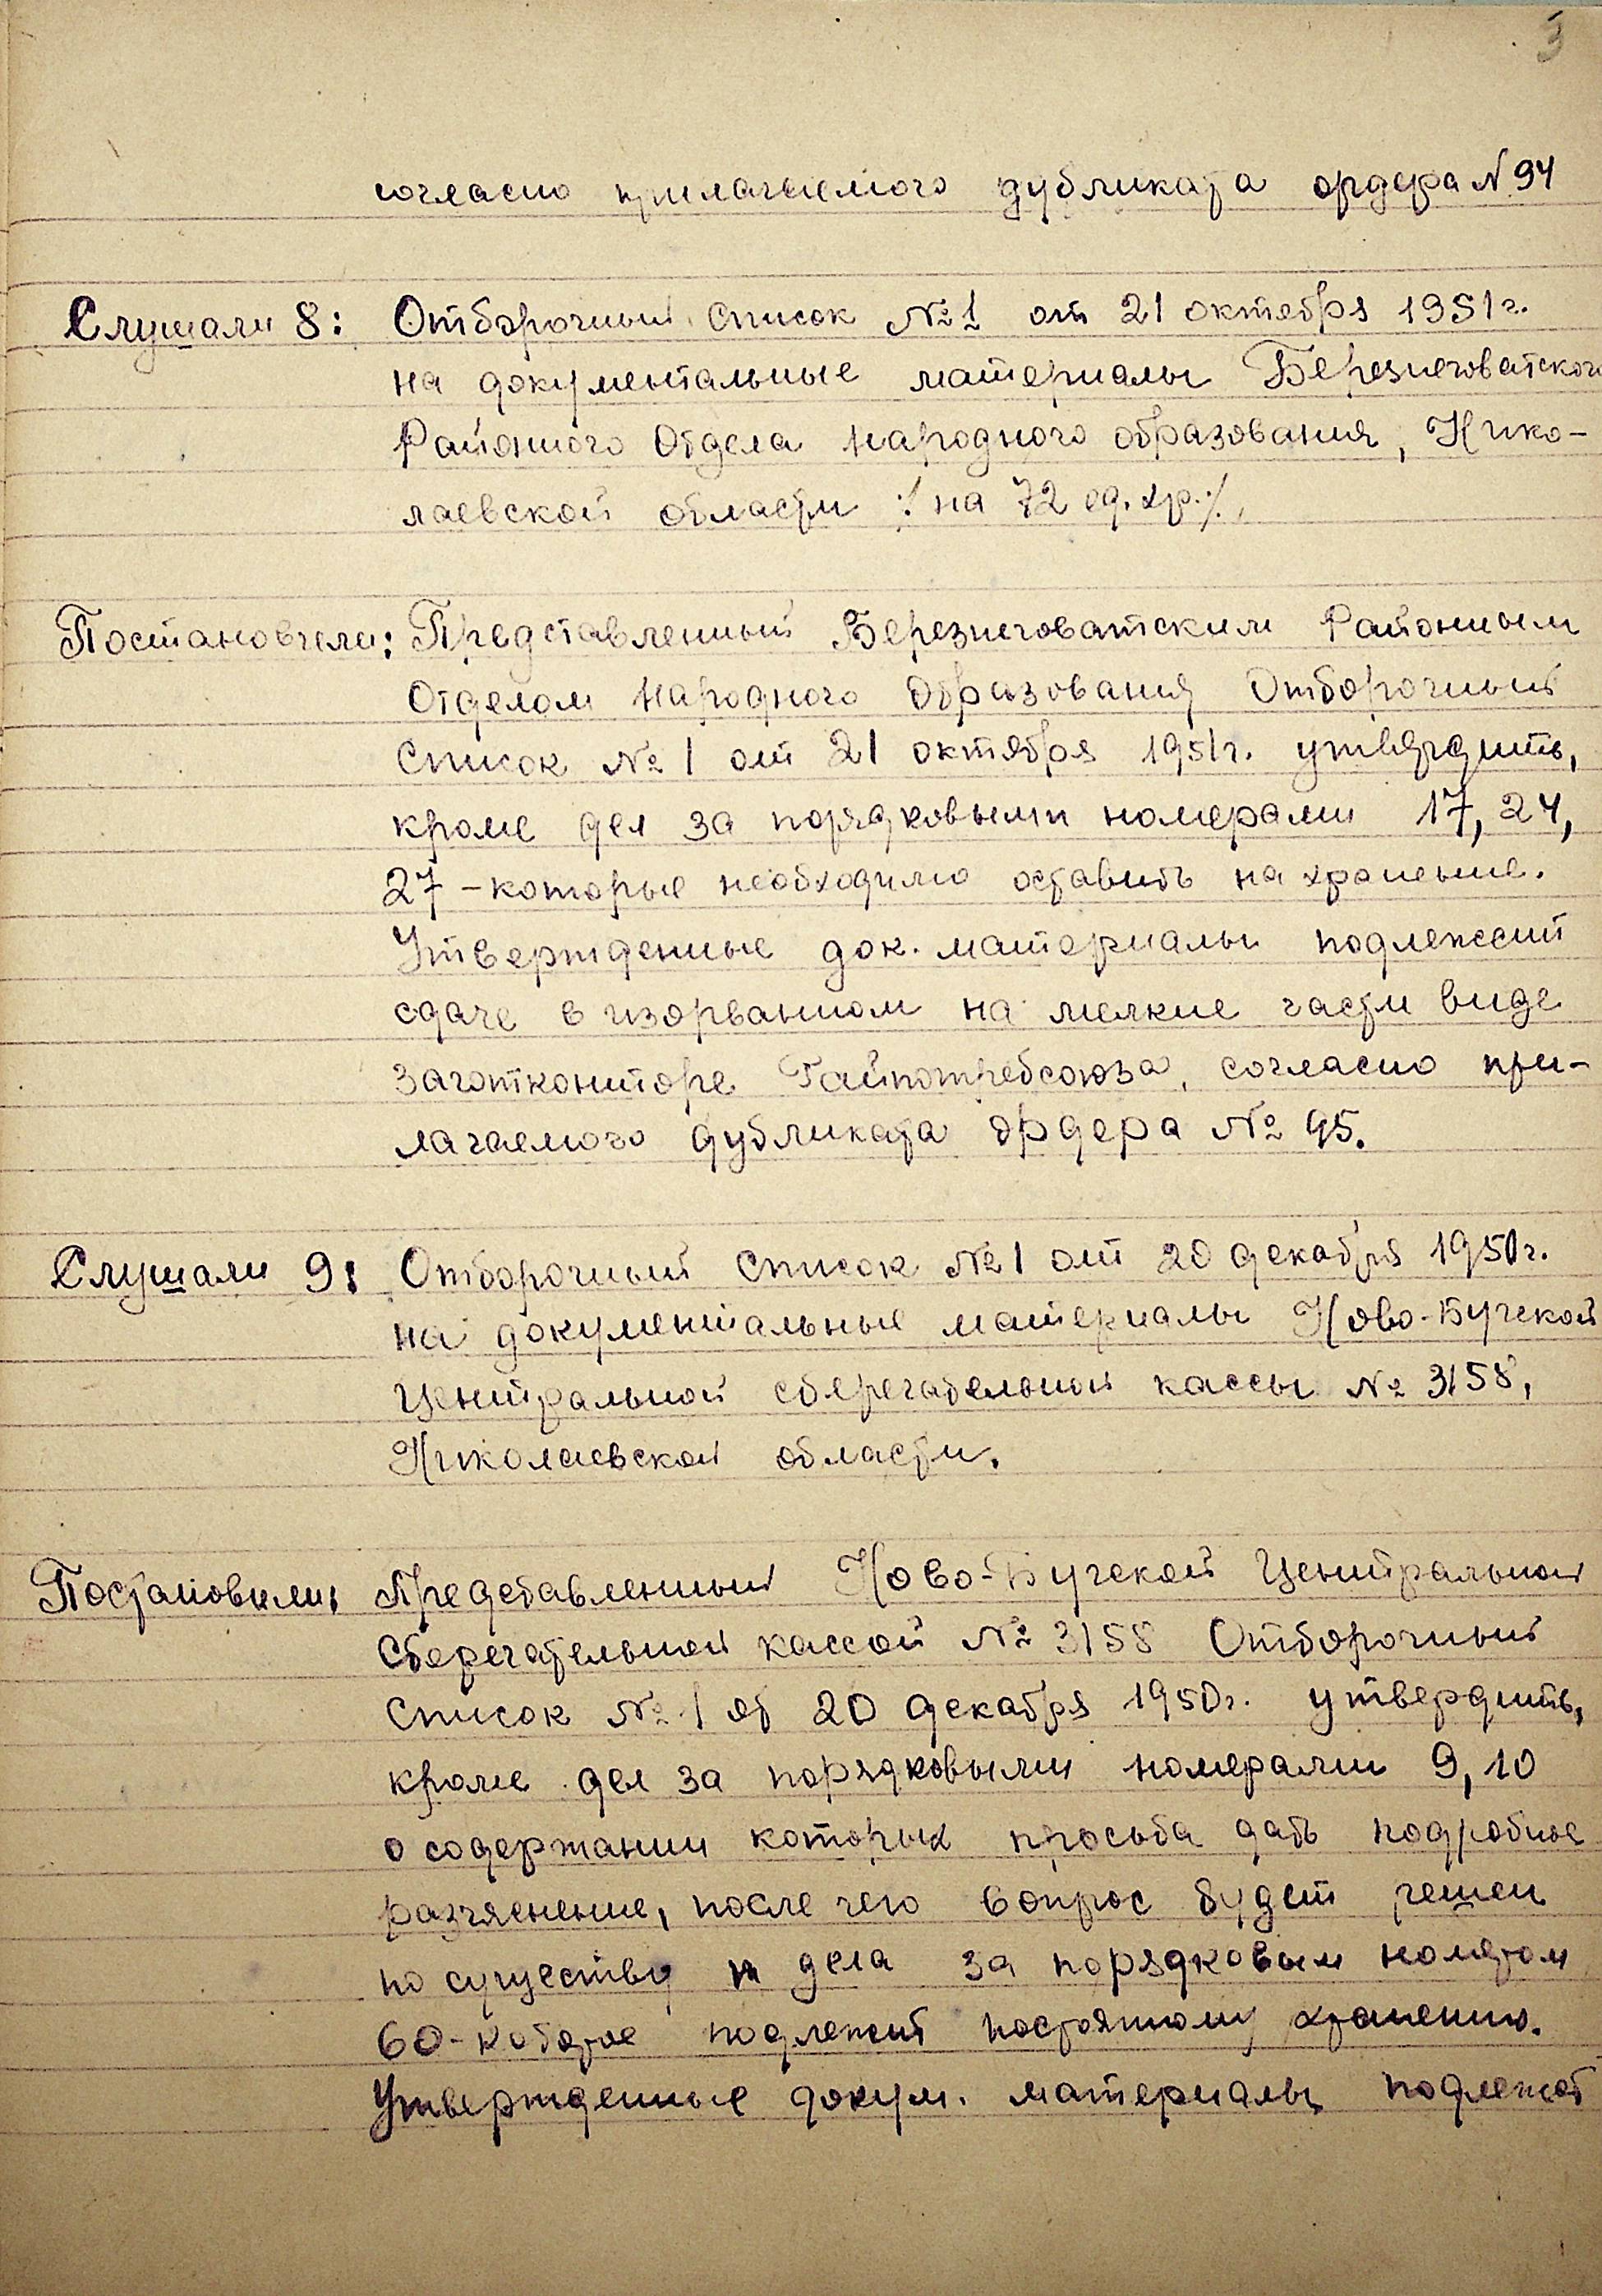 3
согласно прилагаемого дубликата ордера № 94
Слушали 8: Отборочный список № 1 от 21 октября 1951 г.
на документальные материалы Березнеговатского
Районного Отдела народного образования, Нико-
лаевской области /: на 72 ед. хр. :/.
Постановили: Представленный Березнеговатским Районным
Отделом Народного Образования Отборочный
Список № 1 от 21 октября 1951 г. утвердить,
кроме дел за порядковыми номерами 17, 24,
27 - которые необходимо оставить на хранение.
Утвержденные док. материалы подлежат
сдаче в изорванном на мелкие части виде
заготконторе Райпотребсоюза, согласно при-
лагаемого дубликата ордера № 95.
Слушали 9: Отборочный Список № 1 от 20 декабря 1950 г.
на документальные материалы Ново-Бугской
Центральной сберегательной кассы № 3158,
Николаевской области.
Постановили: Представленный Ново-Бугской Центральной
Сберегательной кассой № 3158 Отборочный
Список № 1 от 20 декабря 1950 г. утвердить,
кроме дел за порядковыми номерами 9, 10
о содержании которых просьба дать подробное
разъяснение, после чего вопрос будет решен
по существу и дела за порядковым номером
60 - которое подлежит постоянному хранению.
Утвержденные докум. материалы подлежат